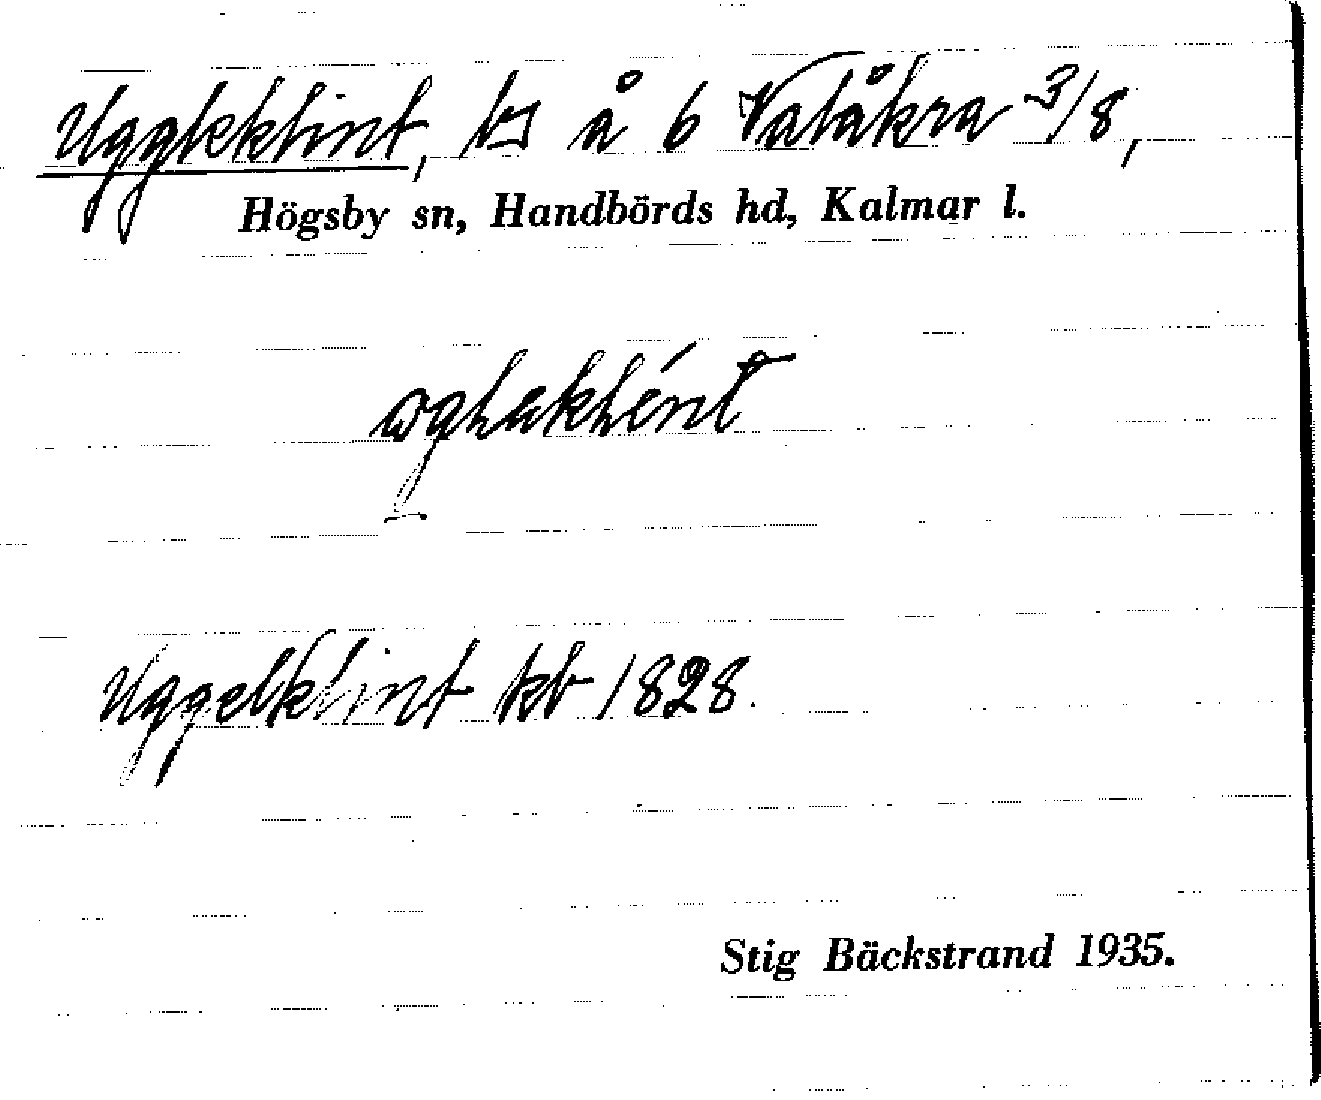 Uggleklint, tg å 6 Valåkra 3/8,
Högsby sn, Handbörds hd, Kalmar l.
Uggelklint kb 1828.
Stig Bäckstrand 1935.